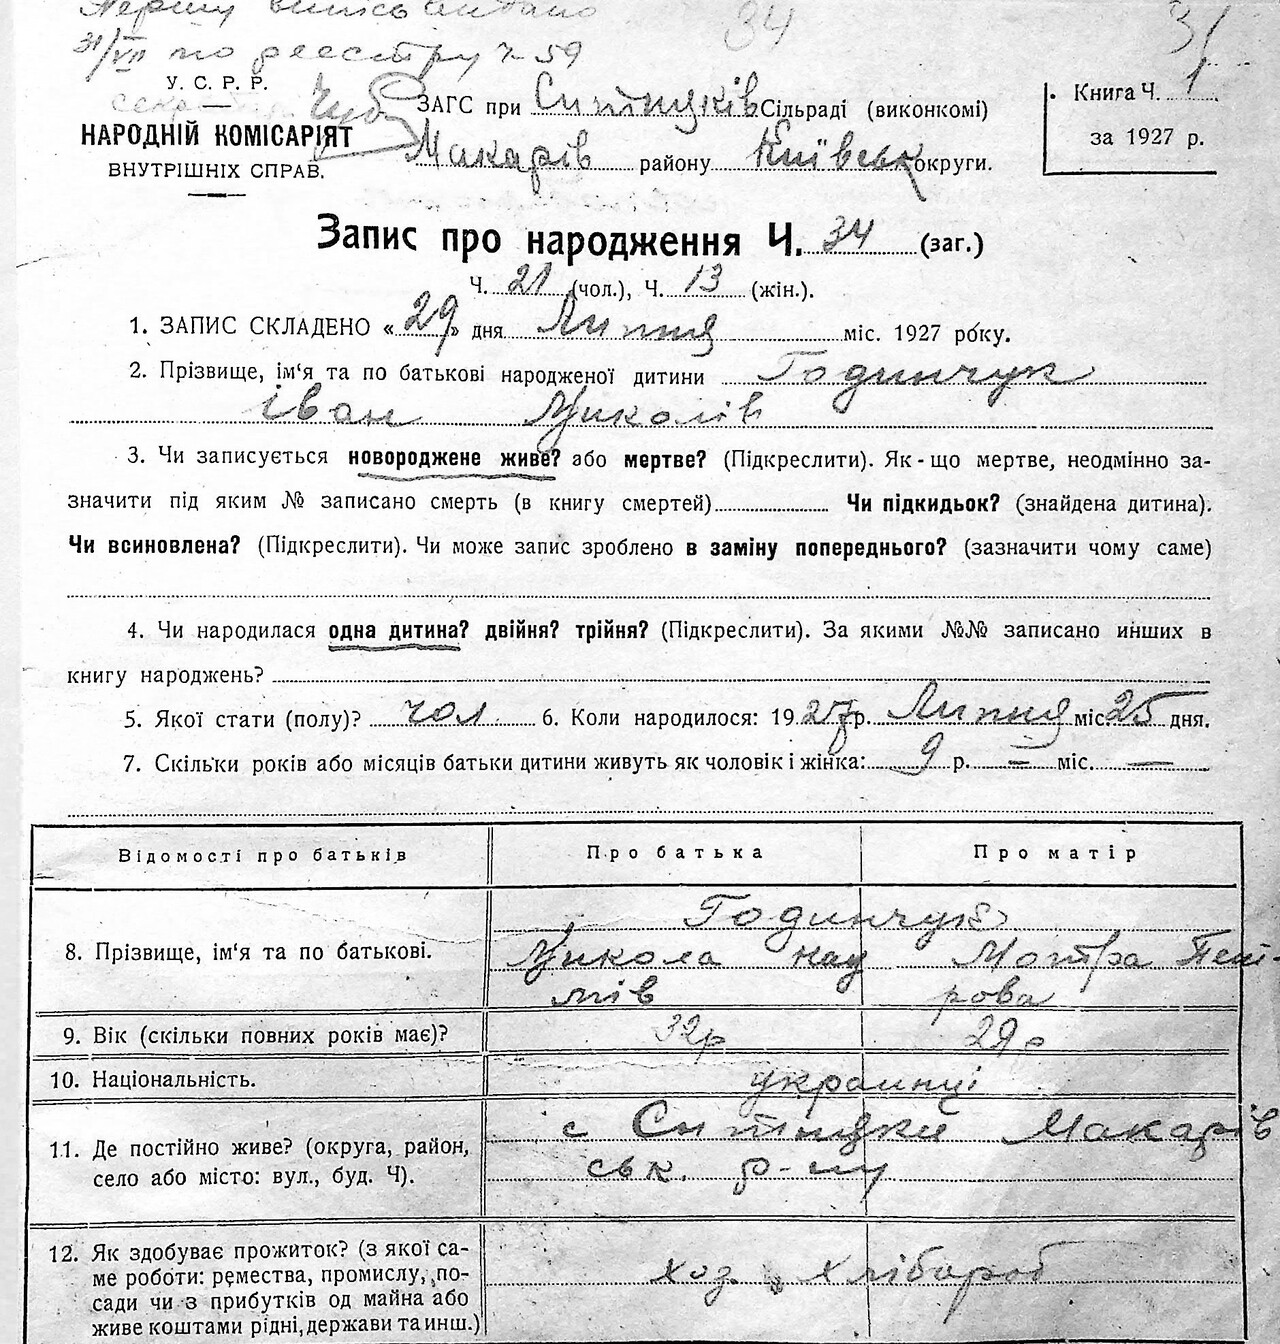 Першу випись видано
31/VII по реєстру № 59
34
31
У. С. Р. Р.
НАРОДНІЙ КОМІСАРІЯТ
ВНУТРІШНІХ СПРАВ.
ЗАГС при Ситняків Сільраді (виконкомі)
Макарів району Київськ округи.
Книга Ч. 1
за 1927 р.
Запис про народження Ч. 34 (заг.)
Ч. 21 (чол.), Ч. 13 (жін.).
1. ЗАПИС СКЛАДЕНО «29» дня Липня міс. 1927 року.
2. Прізвище, ім‘я та по батькові народженої дитини Годинчук
Іван Миколів
3. Чи записується новороджене живе? або мертве? (Підкреслити). Як-що мертве, неодмінно за-
значити під яким № записано смерть (в книгу смертей) Чи підкидьок? (знайдена дитина).
Чи всиновлена? (Підкреслити). Чи може запис зроблено в заміну попереднього? (зазначити чому саме)
4. Чи народилася одна дитина? двійня? трійня? (Підкреслити). За якими №№ записано инших в
книгу народжень?
5. Якої стати (полу)? чол. 6. Коли народилося: 1927 р. Липня міс. 25 дня.
7. Скільки років або місяців батьки дитини живуть як чоловік і жінка: 9 р. — міс. —
Відомості про батьків
Про батька
Про матір
8. Прізвище, ім‘я та по батькові.
Годинчук
Микола Мотра Пет-
рова
9. Вік (скільки повних років має)?
32р 29р
10. Національність.
украинці
11. Де постійно живе? (округа, район,
село або місто: вул., буд. Ч).
с Ситняки Макарів
ськ. р-ну
12. Як здобуває прожиток? (з якої са-
ме роботи: ремества, промислу, по-
сади чи з прибутків од майна або
живе коштами рідні, держави та инш.)
хоз. хлібороб